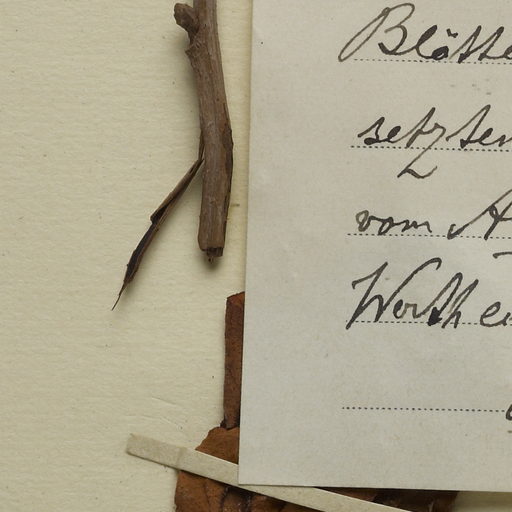 Blätte
setzten
vom A
Werth